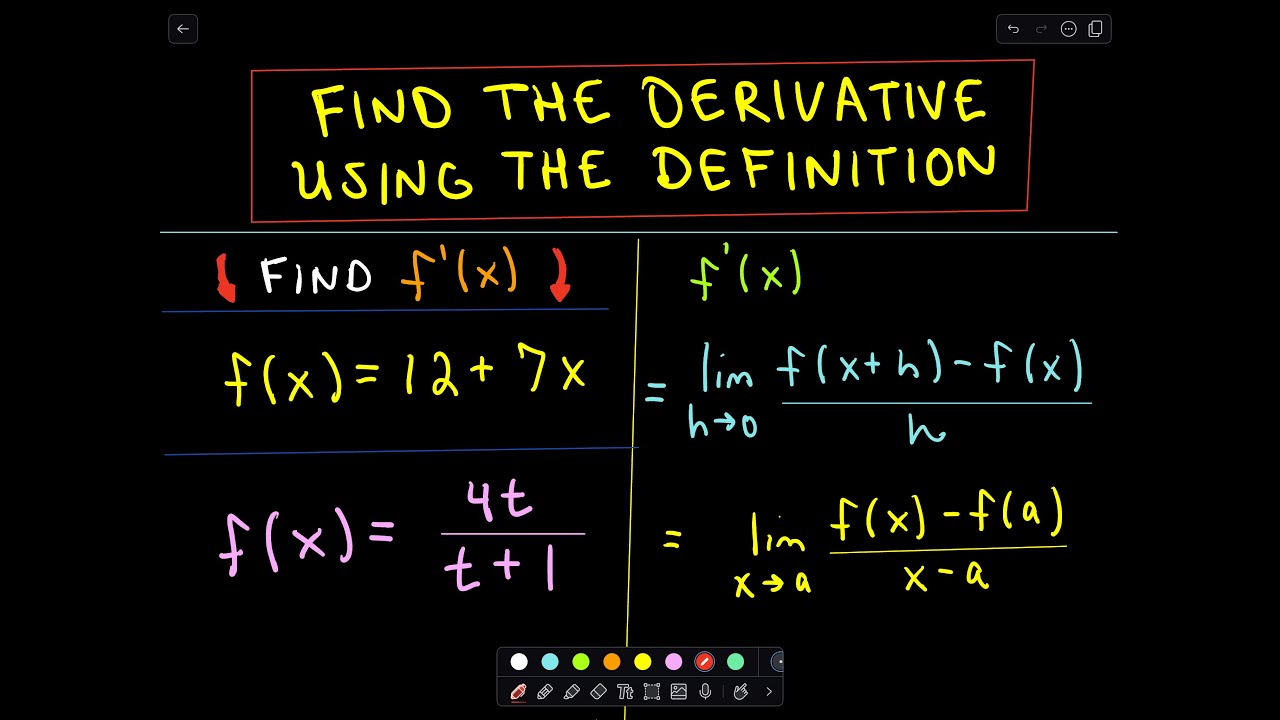 FIND THE DERIVATIVE
USING THE DEFINITION
FIND f'(x)
f(x) = 12 + 7x
f(x) = 4t / t + 1
f'(x)
= lim h→0 f(x+h) - f(x) / h
= lim x→a f(x) - f(a) / x - a
Tt